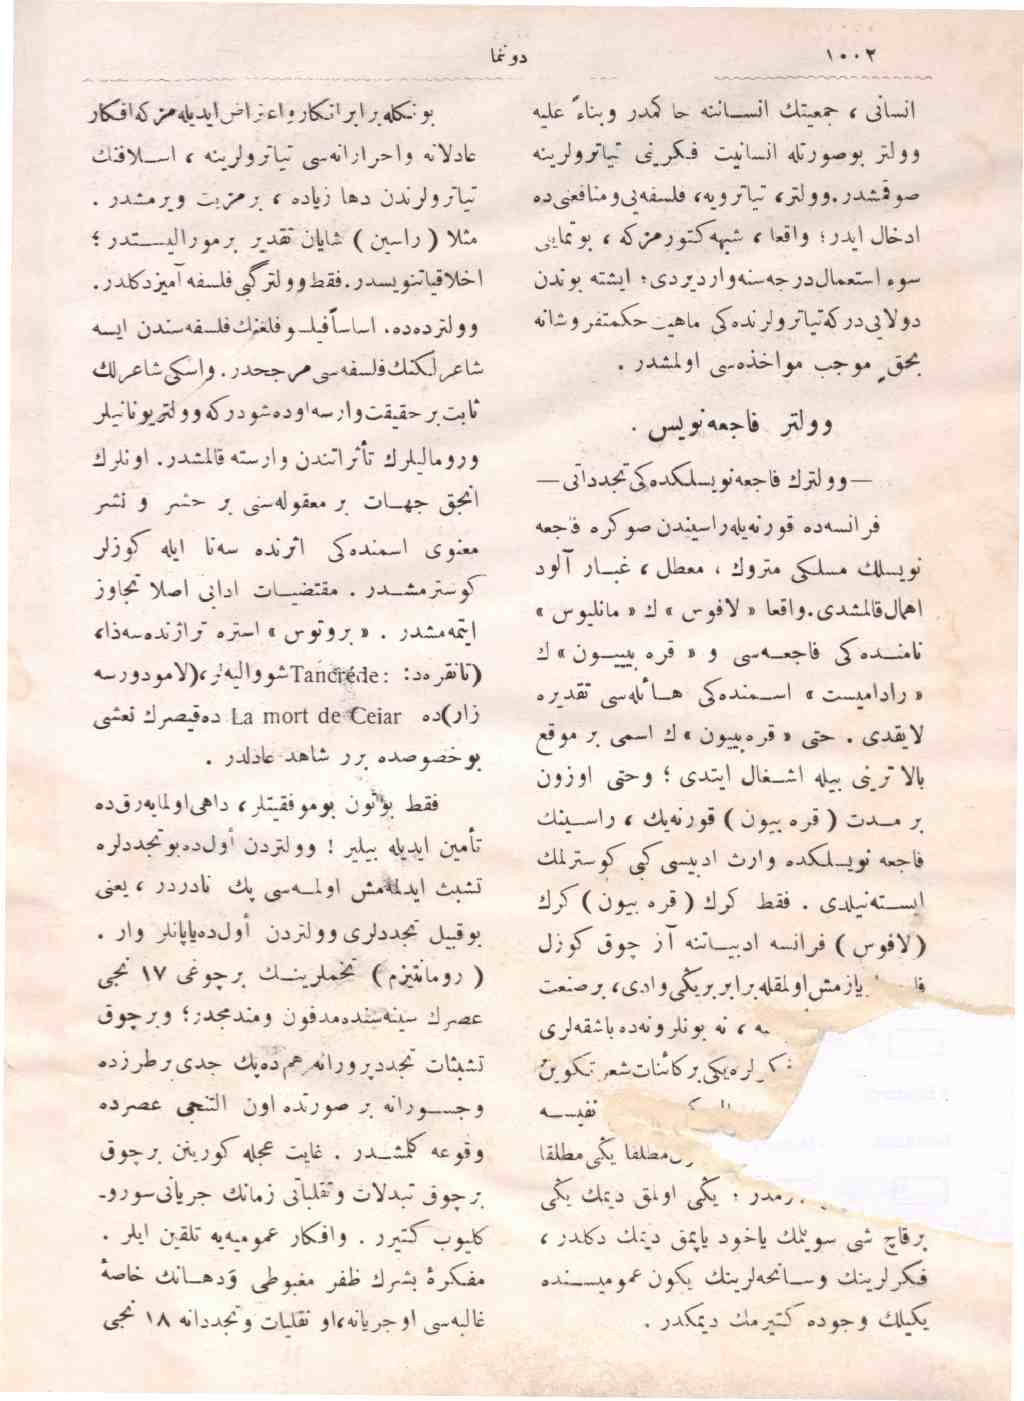 ١٠٠٢
دوننما
انسانی ، جمعیتك انســاننه حاكمدر وبناءً علیه
وولتر بوصورتله انسانیت فكرینی تیاترولرینه
صوقمشدر.وولتر، تیاترویه، فلسفه‌یی‌ومنافعنی‌ده
ادخال ایدر؛ واقعا ، شبهه‌كتورمزكه ، بوتمایلی
سوء استعمال‌درجه‌سنه‌واردیردی؛ ایشته بوندن
دولایی‌دركه‌تیاترولرنده‌كی ماهیت حكمتفروشانه
بحق موجب مواخذه‌سی اولمشدر .
وولتر فاجعه‌نویس .
— وولترك فاجعه‌نویسلكده‌كی‌تجدداتی —
فرانسه‌ده قورنه‌یله‌راسیندن صوكره فاجعه
نویسلك مسلكی متروك ، معطل ، غبــار آلود
اهمال‌قالمشدی.واقعا « لافوس » ك « مانلیوس »
نامنــده‌كی فاجعــه‌سی و « قره بییــون » ك
« رادامیست » اســمنده‌كی هــائله‌سی تقدیره
لایقدی . حتی « قره‌بییون » ك اسمی بر موقع
بالاترینی بیله اشــغال ایتدی ؛ وحتی اوزون
بر مــدت ( قره بیون ) قورنه‌یك ، راســینك
فاجعه نویســلكده وارث ادبیسی كبی كوسترلمك
ایســته‌نیلدی . فقط كرك ( قره بیون ) كرك
( لافوس ) فرانسه ادبیــاتنه آز چوق كوزل
یازمش‌اولمقله‌برابر بریكی‌وادی، برصنعت
، نه بونلرونه‌ده باشقه‌لری
لره‌یكی‌بركائنات‌شعر تكوین
نفیســه
مطلقا یكی‌مطلقا
؛ یكی اولمق دیمك یكی
برقاچ شی سویلمك یاخود یاپمق دیمك دكلدر ،
فكرلرینك وســانحه‌لرینك یكون عمومیســنده
یكیلك وجوده كتیرمك دیمكدر .
بونكله‌برابرانكارواعتراض‌ایدیله‌مزكه‌افكار
عادلانه واحرارانه‌سی تیاترولرینه ، اســلافنك
تیاترولرندن دها زیاده ، برمزیت ویرمشدر .
مثلا ( راسین ) شایان تقدیر برمورالیســتدر ؛
اخلاقیاتنویسدر.فقط‌وولتركبی‌فلسفه‌آمیزدكلدر.
وولترده‌ده، اساساًفیلــوفلغنك‌فلسفه‌سندن ایســه
شاعرلكنك‌فلسفه‌سی‌مرجحدر. واسكی‌شاعرلك
ثابت‌برحقیقت‌وارسه‌اوده‌شودركه‌وولتریونانیلر
ورومالیلرك تأثراتندن وارسته قالمشدر. اونلرك
انجق جهــات بر معقوله‌سنی بر حشر و نشر
معنوی اسمنده‌كی اثرنده سه‌نا ایله كوزلر
كوسترمشــدر . مقتضیــات ادابی اصلا تجاوز
ایتمه‌مشدر . « بروتوس » استره تراژنده‌سه‌ذا،
(تانقره‌د: :Tancréde شووالیه‌لر،(لامودورسه
زار)ده La mort de Ceiar ده‌قیصرك نعشی
بوخصوصده برر شاهد عادلدر .
فقط بوتون بوموفقیتلر ، داهی‌اولمایه‌رق‌ده
تأمین ایدیله بیلیر ! وولتردن اول‌ده‌بوتجددلره
تشبث ایدلمه‌مش اولمــه‌سی پك نادردر ، یعنی
بوقبیل تجددلری وولتردن أول‌ده‌یاپانلر وار .
( رومانتیزم ) تخملرینــك برچوغی ١٧ نجی
عصرك سینه‌سنده‌مدفون ومندمجدر؛ وبرچوق
تشبثات تجددپرورانه‌هم‌ده‌پك جدی‌برطرزده
وجســورانه بر صورتده اون التنجی عصرده
وقوعه كلمشــدر . غایت عجله كورینن برچوق
برچوق تبدلات وتقلباتی زمانك جریانی‌سورو-
كلیوب كتیرر . وافكار عمومیه‌یه تلقین ایلر .
مفكرهٔ بشرك ظفر مغبوطی وَدهــانك خاصهٔ
غالبه‌سی اوجریانه،او تقلیات وتجددانه ١٨ نجی